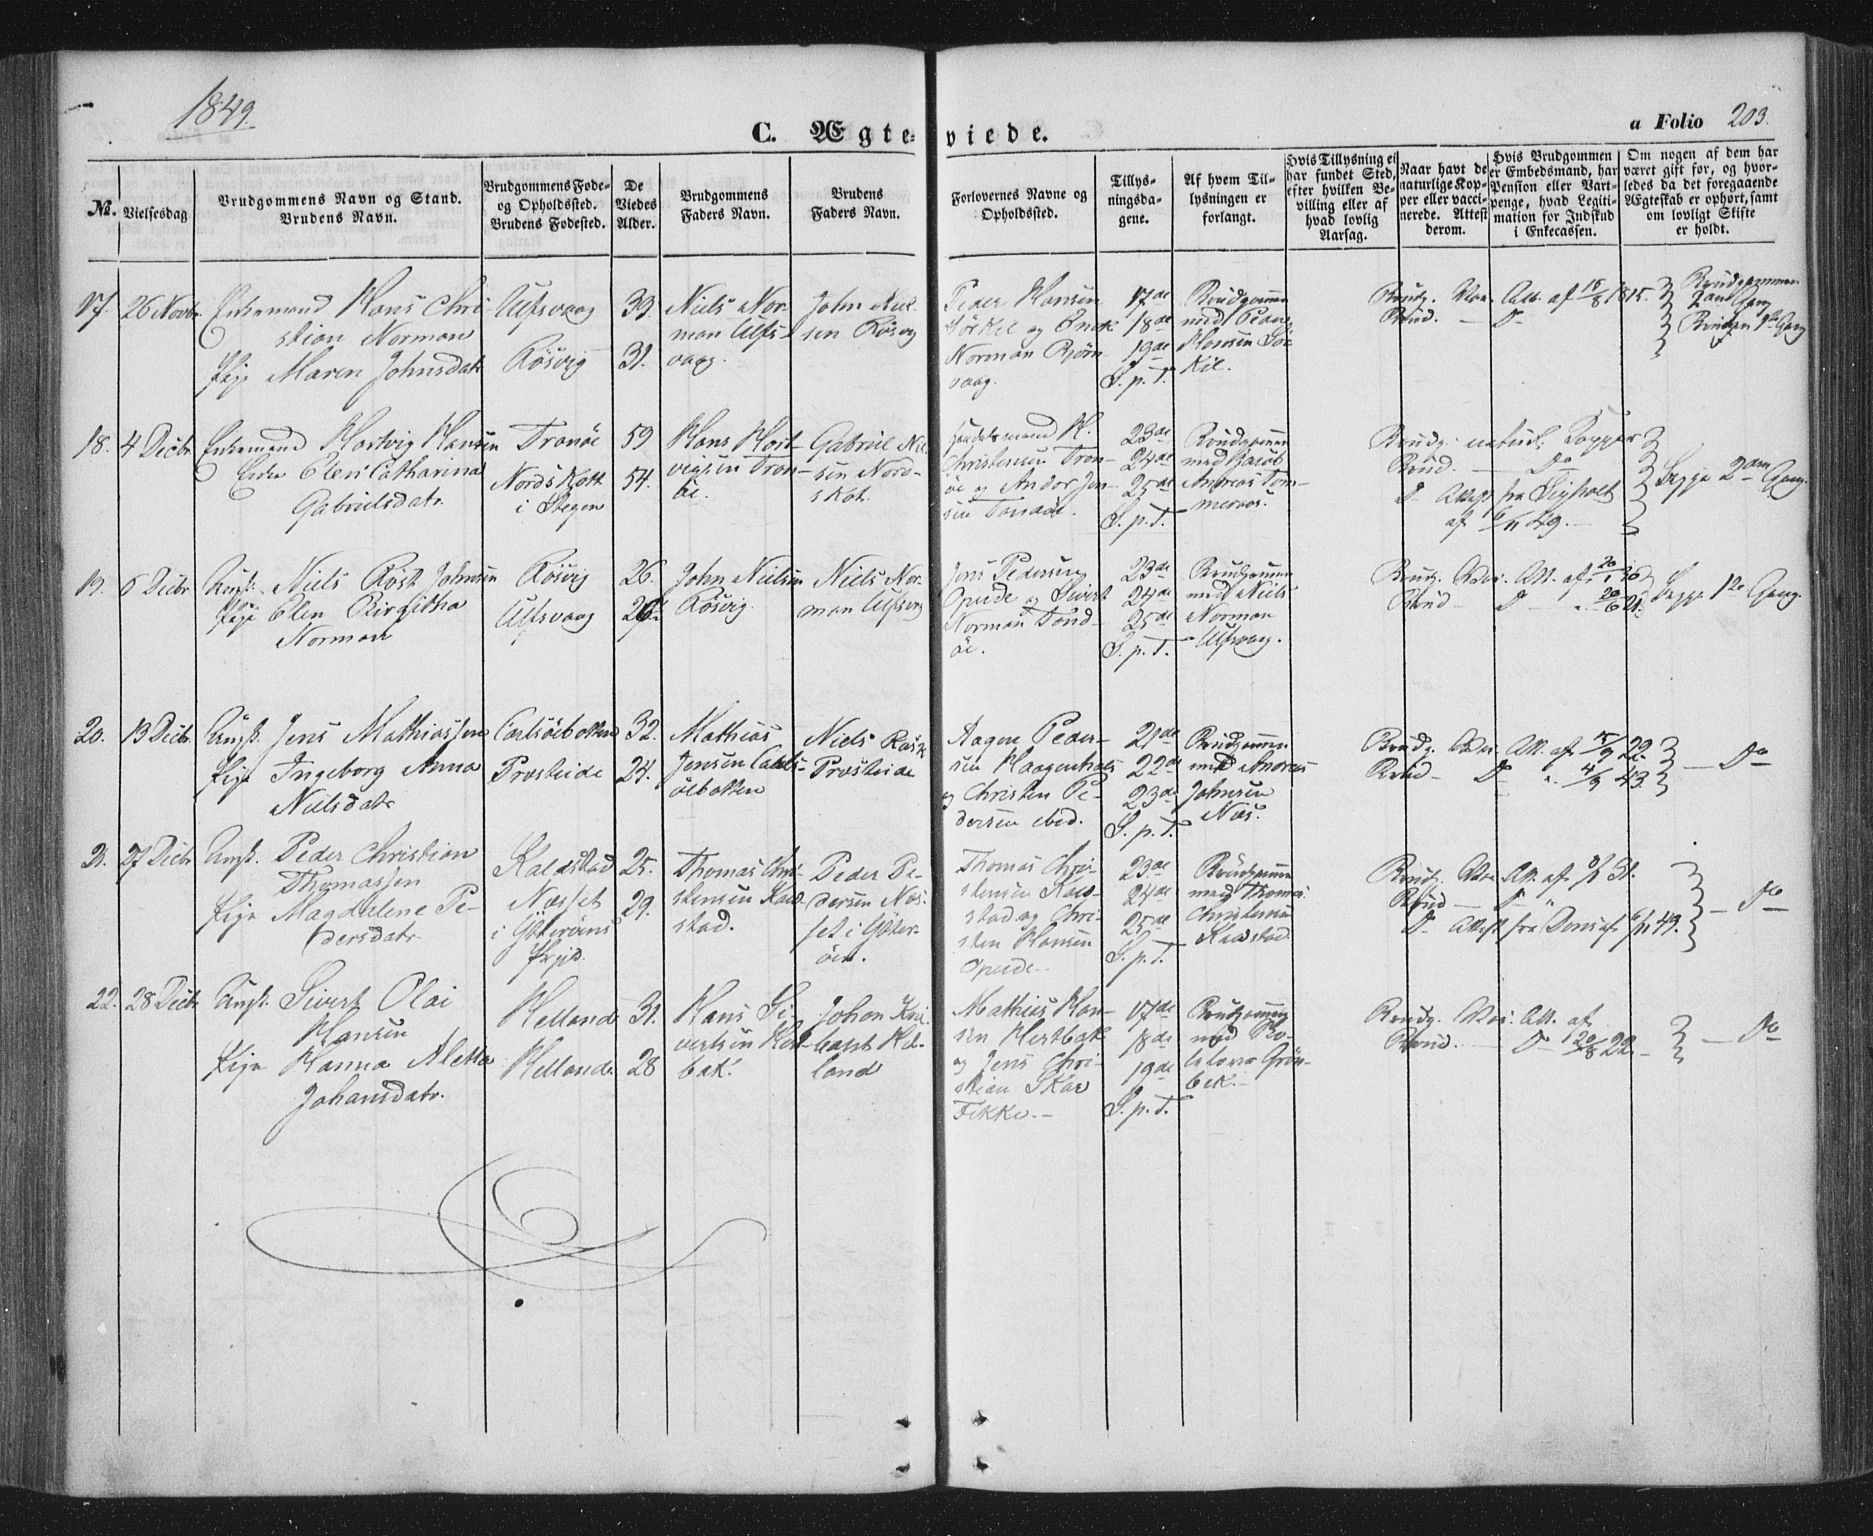 1849.
C. Ægteviede.
a Folio 203.
No.
Vielsesdag
Brudgommens Navn og Stand.
Brudens Navn.
Brudgommens Føde-
og Opholdssted.
Brudens Fødested.
De
Viedes
Alder.
Brudgommens
Faders Navn.
Brudens
Faders Navn.
Forlovernes Navne og
Opholdssted.
Tillys-
ningsda-
gene.
Af hvem Til-
lysningen er
forlangt.
Hvis Tillysning ei
har fundet Sted,
efter hvilken Be-
villing eller af
hvad lovlig
Aarsag.
Naar havt de
naturlige Kop-
per eller vacci-
nerede. Attest
derom.
Hvis Brudgommen
er Embedsmand, har
Pension eller Vart-
penge, hvad Legiti-
mation for Indskud
i Enkecassen.
Om nogen af dem har
været gift før, og hvor-
ledes da det foregaaende
Ægteskab er ophørt, samt
om lovligt Skifte
er holdt.
17. 26 Novbr
Enkemand Hans Chri-
stian Norman
Pige Maren Johnsdatr
Ulfsvaag
Røsvig
39
31.
Niels Nor-
man Ulfs-
vaag.
John Niel-
sen Røsvig
Peder Hansen
Sørkil og
Norman Bjørn-
vaag.
17de
18de
19de
S. p. T.
Brudgommen
med Peder
Hansen Sør-
kil.
Brudg. Vac. Att. af 15/8 1815.
Brud. — Do
Brudgommen
2den Gang
Bruden 1ste Gang
18. 4 Decbr
Enkemand Hartvig Hansen
Enke Elen Catharina
Gabrielsdatr.
Tranøe
Nordskott
i Stegen
59
54.
Hans Hart-
vigsen Tran-
øe.
Gabriel Niel-
sen Nord-
skot.
Handelsmand H.
Christensen Tran-
øe og Andor Jen-
sen Tranøe.
23de
24de
25de
S. p. T.
Brudgommen
med Jacob
Andreas Tom-
meraas.
Brudg. naturl. Kopper
Brud. — Do
Do Attest fra
af 6/11 49.
Begge 2den Gang.
19. 6 Decbr
Ungk. Niels Røst Johnsen
Pige Elen Birgitha
Norman
Røsvig
Ulfsvaag
26.
John Nielsen
Røsvig.
Niels Nor-
man Ulfsvaag
Jens Pedersen
Opeide og Sivert
Norman Tand-
øe.
23de
24de
25de
S. p. T.
Brudgommen
med Niels
Norman
Ulfsvaag.
Brudg. Vac. Att. af 20/1 26
Brud — Do — " 20/6 21.
Begge 1ste Gang.
20. 13 Decbr.
Ungk. Jens Mathiassen
Pige Ingeborg Anna
Nielsdatr
Carlsøebotten
Presteide
32.
24.
Mathias
Jensen Carls-
øebotten
Niels Rask
Presteide
Aagen Peder-
sen Haagenhals
og Christen Pe-
dersen ibid.
21de
22de
23de
S. p. T.
Brudgommen
med Andreas
Johnsen
Næs.
Brudg. Vac. Att. af 15/9 22.
Brud — Do " 4/9 43.
— Do
21. 27 Decbr
Ungk. Peder Christian
Thomassen
Pige Magdalene Pe-
dersdatr.
Kaldstad
Næsset
i Ytterøens
Prgjld.
25.
29.
Thomas Chri-
stensen Kald-
stad.
Peder Pe-
dersen Næs-
set i Ytter-
øen.
Thomas Chri-
stensen Kald-
stad og Chri-
sten Hansen
Opeide.
23de
24de
25de
S. p. T.
Brudgommen
med Thomas
Christensen
Kaldstad.
Brudg. Vac. Att. af
Brud — Do "
— Do
22. 28 Decbr
Ungk. Sivert Olai
Hansen
Pige Hanna Aletta
Johansdatr.
Helland
Helland.
31.
28
Hans Si-
vertsen Hest-
bak.
Johan
Hel-
land
Mathias Han-
sen Hestbak
og Jens Chri-
stian Skar
Fikke.
17de
18de
19de
S. p. T.
Brudgommen
med
Grøn-
bek.
Brudg. Vac. Att. af
Brud. — Do 20/8 22
— Do